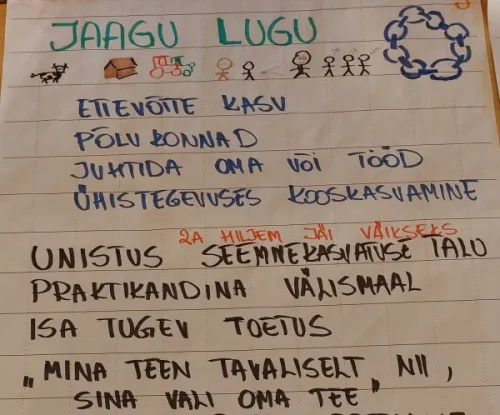 JAAGU LUGU
ETTEVÕTTE KASV
PÕLVKONNAD
JUHTIDA OMA VÕI TÖÖD
ÜHISTEGEVUSES KOOSKASVAMINE
2A HILJEM JÄI VÄIKSEKS
UNISTUS SEEMNEKASVATUSE TALU
PRAKTIKANDINA VÄLISMAAL
ISA TUGEV TOETUS
„MINA TEEN TAVALISELT NII,
SINA VALI OMA TEE"